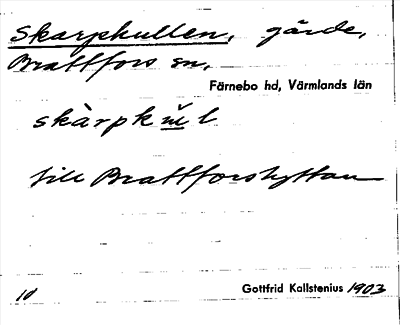 Skarpkullen, gärde,
Brattfors sn,
Färnebo hd, Värmlands län
skàrpkŭl
till Brattforshyttan
10 Gottfrid Kallstenius 1903